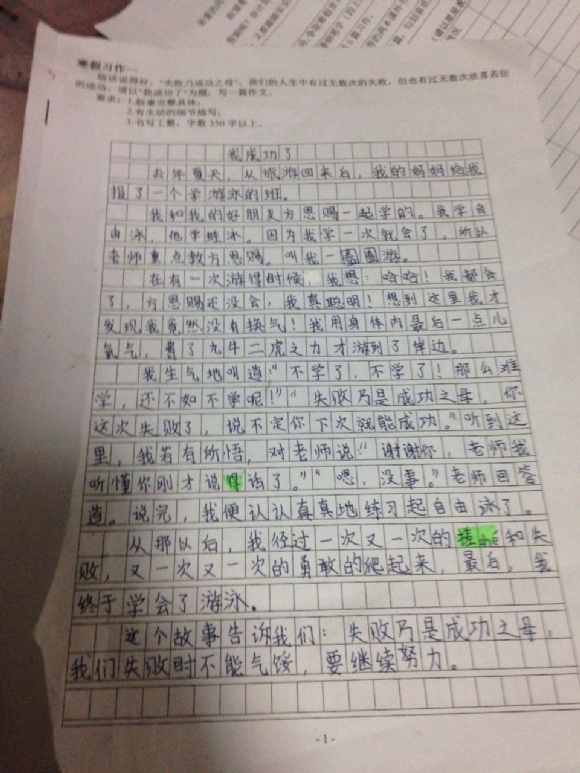 寒假习作一
俗话说得好,“失败乃成功之母”,我们的人生中有过无数次的失败,但也有过无数次欣喜若狂
的成功,请以“我成功了”为题,写一篇作文。
要求:1.叙事完整具体。
2.有生动的细节描写。
3.书写工整,字数350字以上。
我成功了
去年夏天,从旅游回来后,我的妈妈给我
报了一个学游泳的班。
我和我的好朋友方思赐一起学的。我学自
由泳,他学蛙泳。因为我学一次就会了,所以
老师重点教方思赐。叫我一圈圈游。
在有一次游得时候,我想:哈哈!我都会
了,方思赐还没会,我真聪明!想到这里我才
发现我竟然没有换气!我用身体内最后一点儿
氧气,费了九牛二虎之力才游到了岸边。
我生气地叫道:“不学了,不学了!那么难
学,还不如不学呢!”“失败乃是成功之母,你
这次失败了,说不定你下次就能成功。”听到这
里,我若有所悟,对老师说:“谢谢你,老师我
听懂你刚才说得话了。”“嗯,没事。”老师回答
道。说完,我便认认真真地练习起自由泳了。
从那以后,我经过一次又一次的挫zhé和失
败,又一次又一次的勇敢的爬起来,最后,我
终于学会了游泳。
这个故事告诉我们:失败乃是成功之母,
我们失败时不能气馁,要继续努力。
-1-